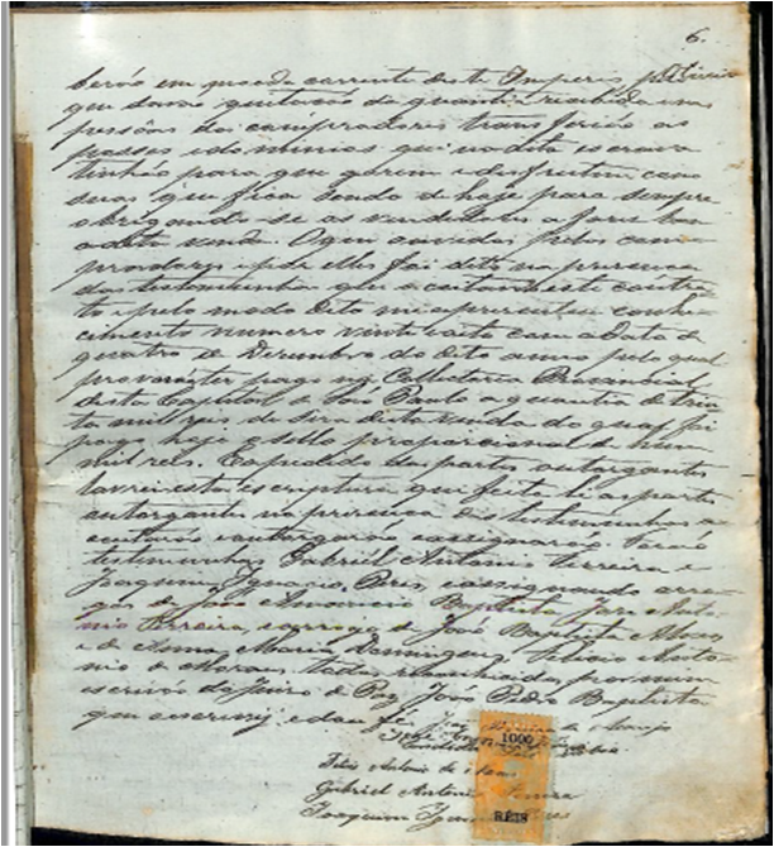 6.
berão em moeda corrente deste Imperio
que davão quitação da quantia recebida e nas
pessôas dos compradores transferião as
posses e dominios que na dita escrava
tinhão para que gozem e disfrutem como
suas que fica sendo de hoje para sempre
obrigando-se os vendedores a fazer boa
a dita venda. O que ouvidos pelos com-
pradores e por elles foi dito na presença
das testemunhas que aceitavam este contra-
to e pelo modo dito me apresentou conhe-
cimento numero vinte e oito com a data de
quatro de Dezembro do dito anno pelo qual
provar ter pago na Collectoria Provincial
desta Capital de São Paulo a quantia de trin-
ta mil reis de sisa desta venda do qual foi
pago hoje o sello proporcional de hum
mil reis. E a pedido das partes outorgantes
lavrei esta escriptura que feita li as partes
outorgantes na presença das testemunhas a-
ceitarão e outorgarão e assignarão. Forão
testemunhas Gabriél Antonio Ferreira e
Joaquim Ignacio Pires, e assignando arro-
gos de João Amancio Baptista José Anto-
nio Pereira, e arrogo de José Baptista Alves
e de Anna Maria Domingues, Felicio Anto-
nio de Moraes todos reconhecidos por mim
escrivão do Juizo de Paz João Pedro Baptista
que escrevy e dou fé.
1000
Felicio Antonio de Moraes
Gabriel Antonio Ferreira
Joaquim Ignacio Pires
RÉIS